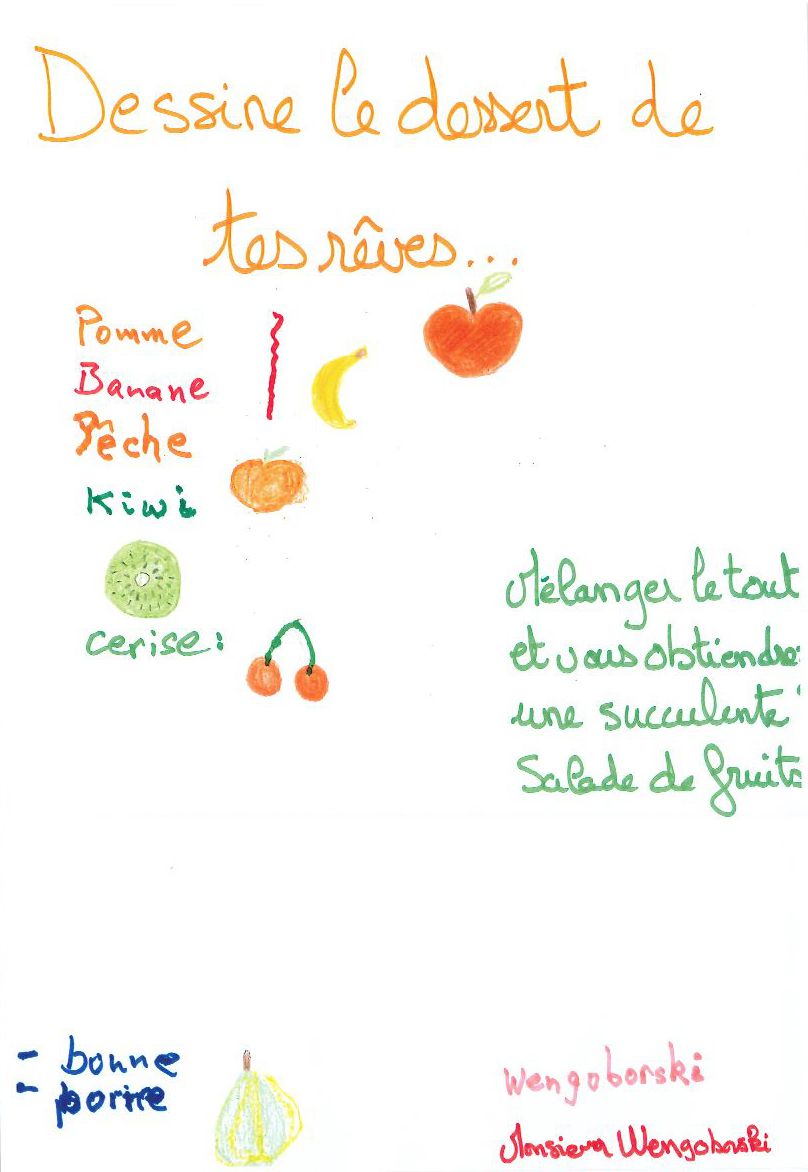 Dessine le dessert de
tes rêves...
Pomme
Banane
Pêche
Kiwi
cerise:
Mélanger le tout
et vous obtiendre
une succulente
Salade de fruits
- bonne
- poire
Wengoborski
Monsieur Wengoborski